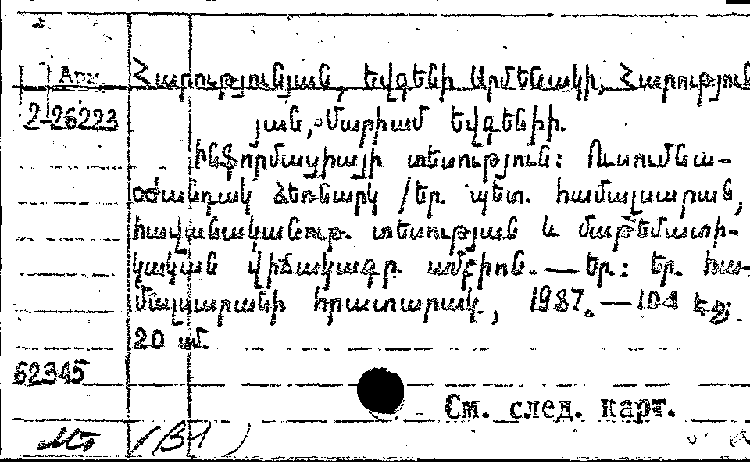 Арм. Հարությունյան, Եվգենի Արմենակի, Հարություն-
2-26223 յան, Մարիամ Եվգենիի.
Ինֆորմացիայի տեսություն: Ուսումնա-
օժանդակ ձեռնարկ /Եր. պետ. համալսարան,
հավանականութ. տեսության և մաթեմատի-
կական վիճակագր. ամբիոն. — Եր.: Եր. հա-
մալսարանի հրատարակ., 1987. — 104 էջ
20 սմ.
62345
См. след. карт.
(B1)